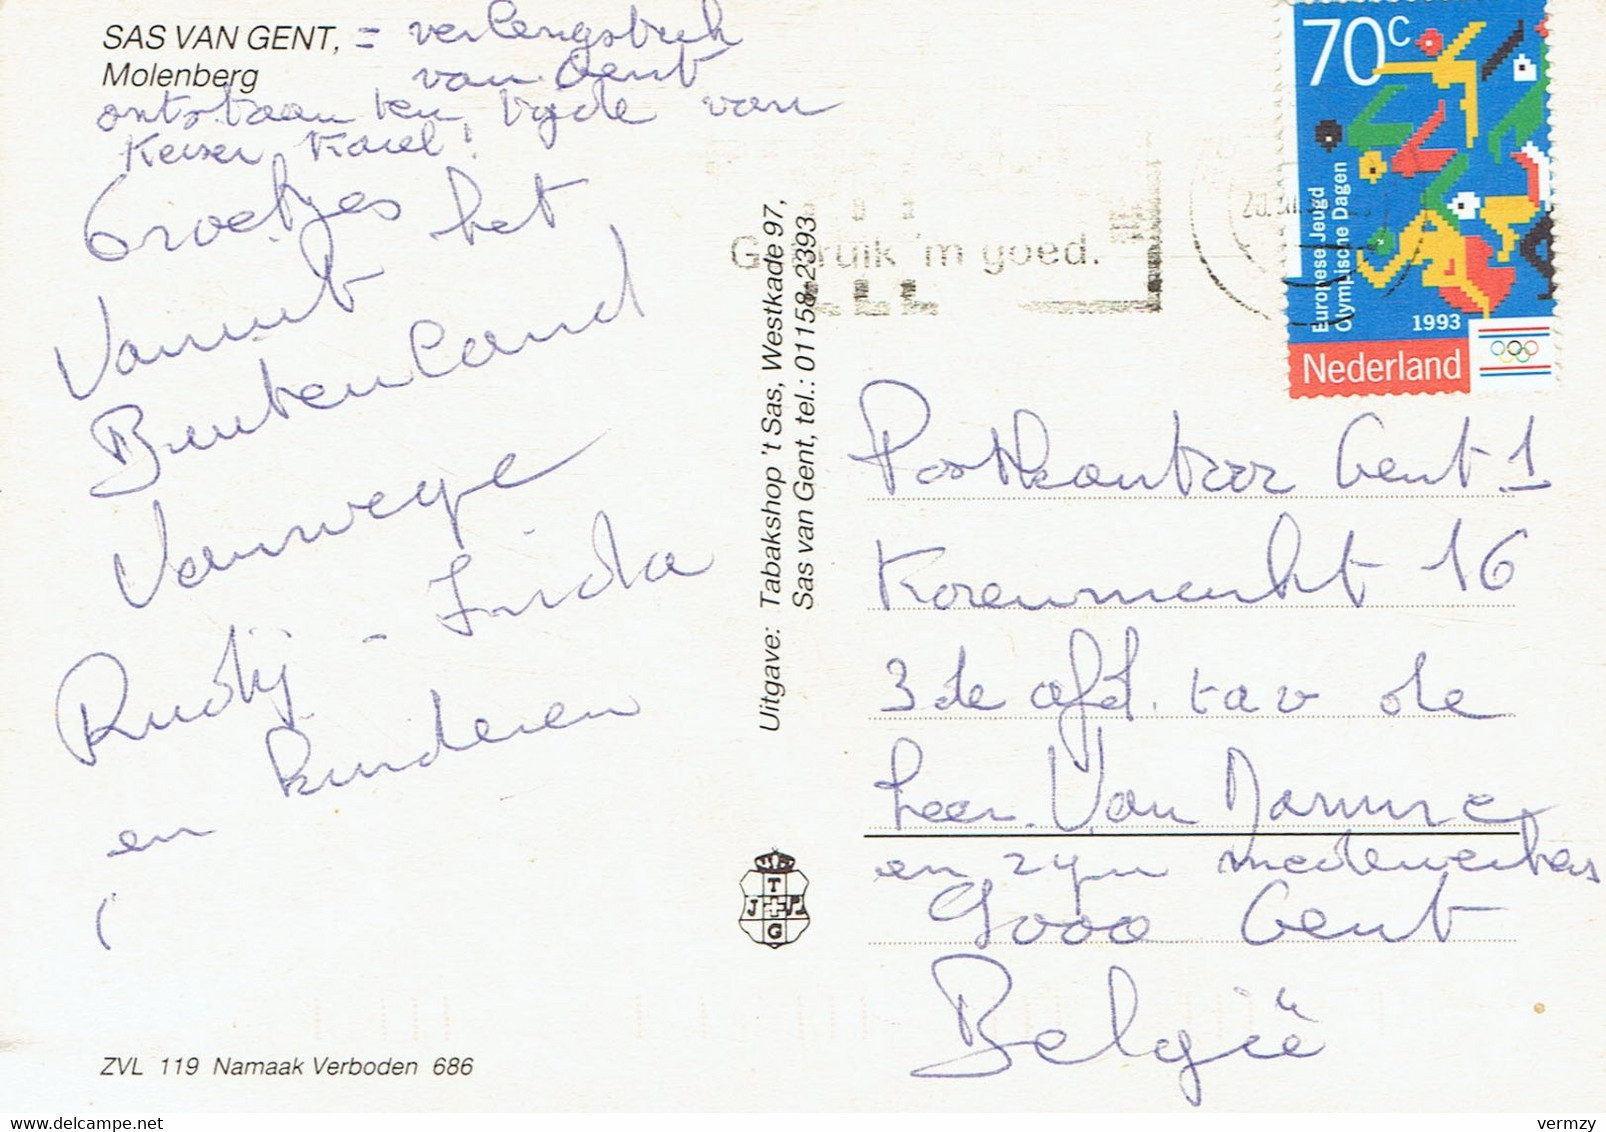 SAS VAN GENT, = verlengstuk
Molenberg van Gent
ontstaan ten tijde van
Keizer Karel!
Groetjes
Vanuit het
Buitenland
Vanwege
Rudij - Frida
en kinderen
Uitgave: Tabakshop 't Sas, Westkade 97,
Sas van Gent, tel.: 01158-2393
Gebruik 'm goed.
70c
Europese Jeugd
Olympische Dagen
1993
Nederland
Postkantoor Gent 1
Korenmarkt 16
3de afd. tav de
heer Van Damme
en zijn medewerkers
9000 Gent
België
T
J P
G
ZVL 119 Namaak Verboden 686
vermzy